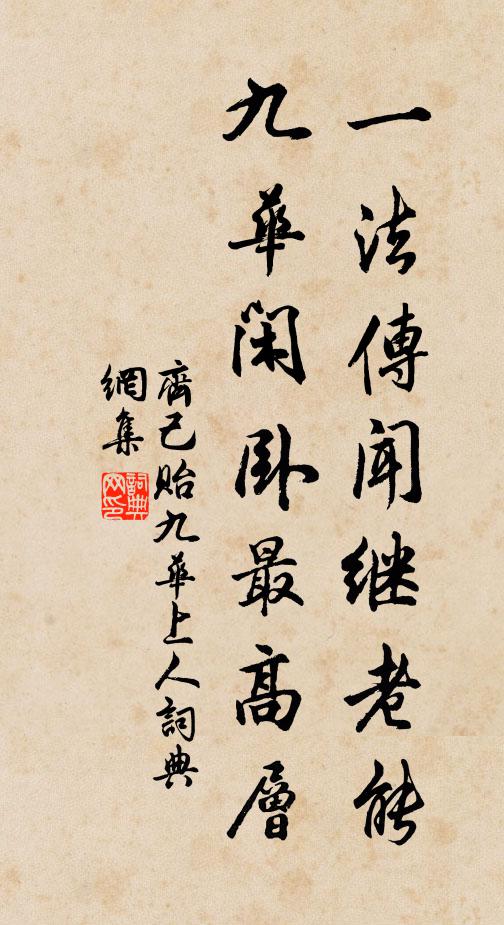 一法傳聞继老能
九華閑卧最高層
齊己貽九華上人詞典
網集
詞典网印